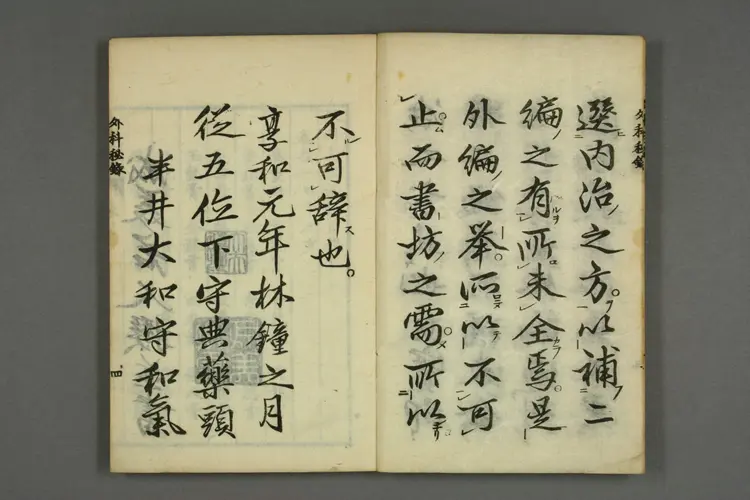 外科秘録
選内治之方以補二
編之有所未全焉是
外編之挙所以不可
止而書坊之需所以
不可辞也
享和元年林鐘之月
従五位下守典薬頭
半井大和守和氣
外科秘録
四